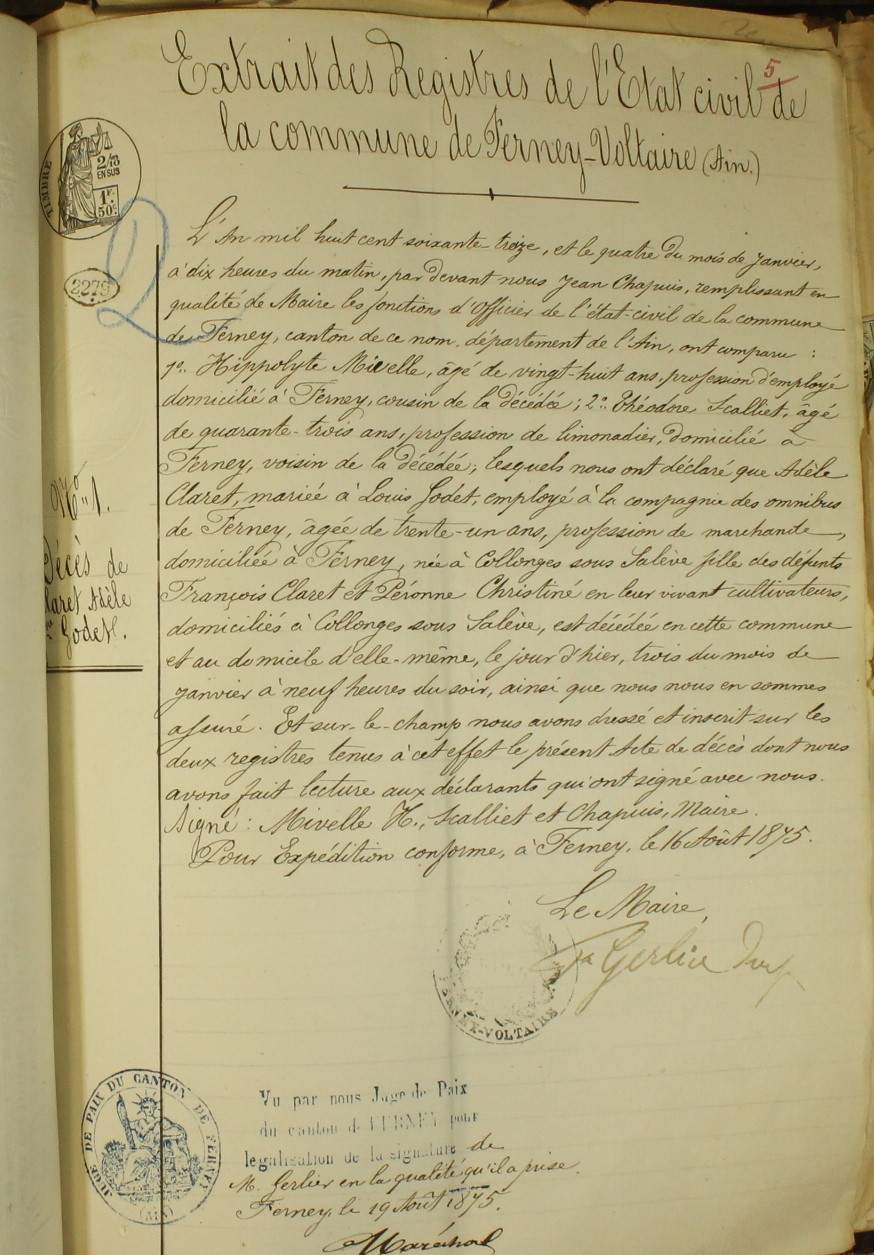 5
Extrait des Registres de l'Etat civil de
la commune de Ferney-Voltaire (Ain.)
TIMBRE
2/10
EN SUS
1F.
50c.
2
2279
L'An mil huit cent soixante-treize, et le quatre du mois de janvier,
à dix heures du matin, par devant nous Jean Chapuis, remplissant en
qualité de Maire les fonctions d'Officier de l'état-civil de la commune
de Ferney, canton de ce nom, département de l'Ain, ont comparu :
1o. Hippolyte Mivelle, âgé de vingt-huit ans, profession d'employé
domicilié à Ferney, cousin de la décédée; 2o. Théodore Scalliet, âgé
de quarante-trois ans, profession de limonadier, domicilié à
Ferney, voisin de la décédée; lesquels nous ont déclaré que Adèle
Claret, mariée à Louis Godet, employé à la compagnie des omnibus
de Ferney, âgée de trente-un ans, profession de marchande,
domiciliée à Ferney, née à Collonges sous Salève fille des défunts
François Claret et Péronne Christiné en leur vivant cultivateurs,
domiciliés à Collonges sous Salève, est décédée en cette commune
et au domicile d'elle-même, le jour d'hier, trois du mois de
janvier à neuf heures du soir, ainsi que nous nous en sommes
assuré. Et sur-le-champ nous avons dressé et inscrit sur les
deux registres tenus à cet effet le présent Acte de décès dont nous
avons fait lecture aux déclarants qui ont signé avec nous.
Signé : Mivelle H., Scalliet et Chapuis, Maire.
Pour Expédition conforme, à Ferney, le 16 Août 1875.
No 1.
Décès de
Claret Adèle
Godet.
Le Maire,
Gerlier
FERNEX-VOLTAIRE
JUGE DE PAIX DU CANTON DE FERNEY
(AIN)
Vu par nous Juge de Paix
du canton de FERNEY pour
légalisation de la signature de
M. Gerlier en la qualité qu'il a prise.
Ferney, le 19 Août 1875.
Maréchal